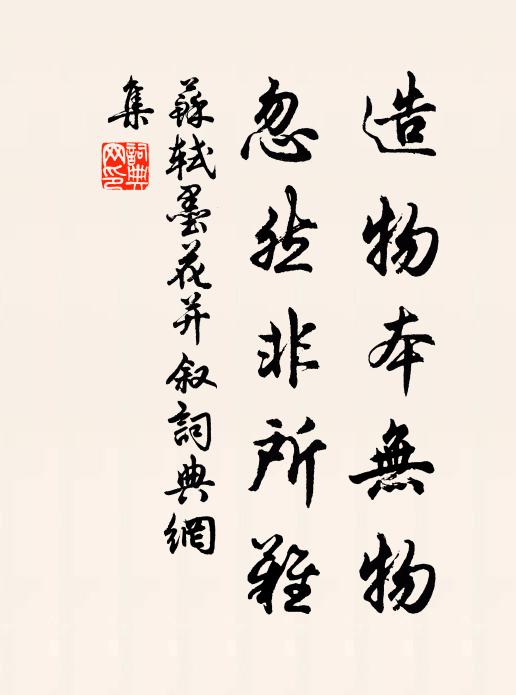 造物本無物
忽然非所難
蘇軾墨花并叙詞典網
集
詞典網印